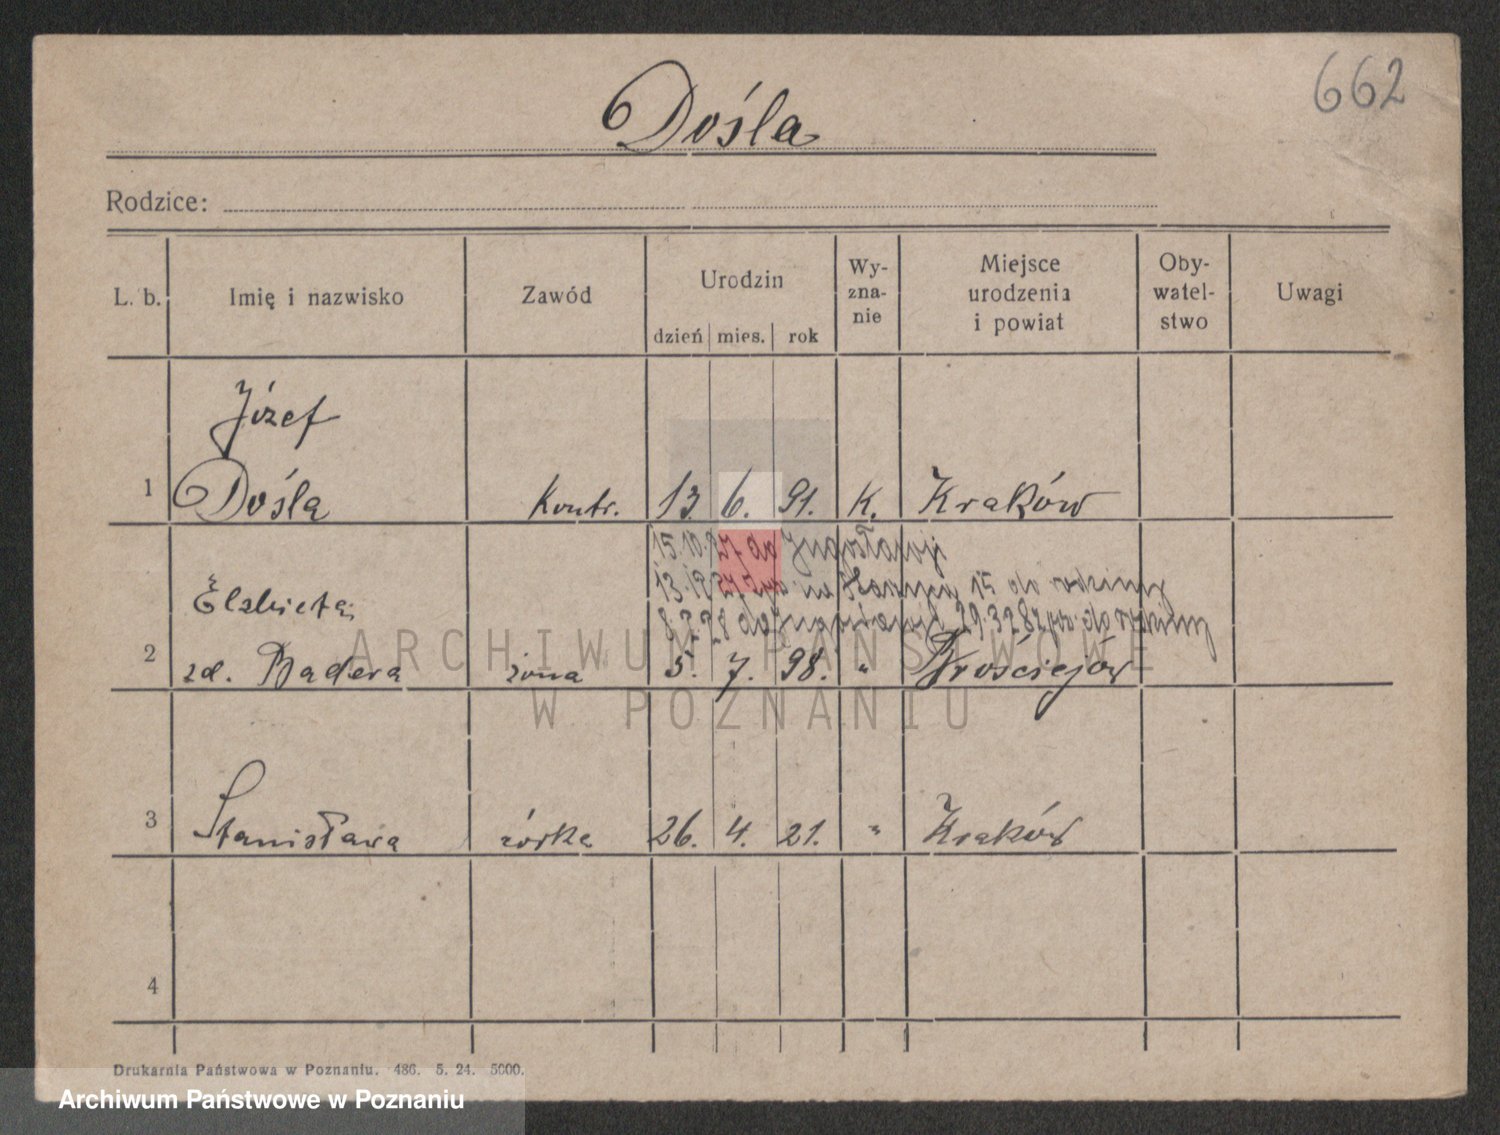 662
Dośla
Rodzice:
L. b. Imię i nazwisko Zawód Urodzin dzień mies. rok Wy-zna-nie Miejsce urodzenia i powiat Oby-watel-stwo Uwagi
Józef
1 Dośla Kontr. 13. 6. 91. K. Kraków
15.10.27 do Jugosławji
13.12.27 na 15 do rodziny
8.2.28 do Jugosławji 29.3.28 do rodziny
Elżbieta
2 zd. Badera żona 5. 7. 98. " Prościejów
3 Stanisława córka 26. 4. 21. " Kraków
4
ARCHIWUM PAŃSTWOWE
W POZNANIU
Drukarnia Państwowa w Poznaniu. 486. 5. 24. 5000.
Archiwum Państwowe w Poznaniu